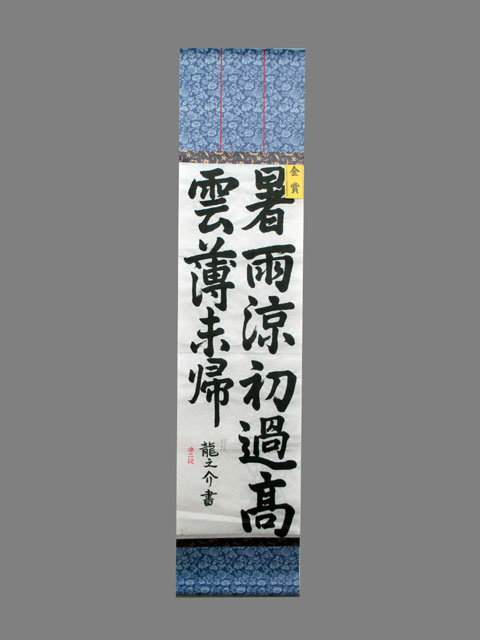 金賞
暑雨涼初過高
雲薄未帰
龍之介書
準二段